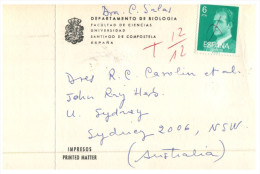 Dra. C. Salas
DEPARTAMENTO DE BIOLOGIA
FACULTAD DE CIENCIAS
UNIVERSIDAD
SANTIAGO DE COMPOSTELA
ESPAÑA
+ 12/12
6
PTA
ESPAÑA
Dres R. C. Carolin et al.
John Ray Herb.
U. Sydney
Sydney 2006, NSW.
(Australia)
IMPRESOS
PRINTED MATTER